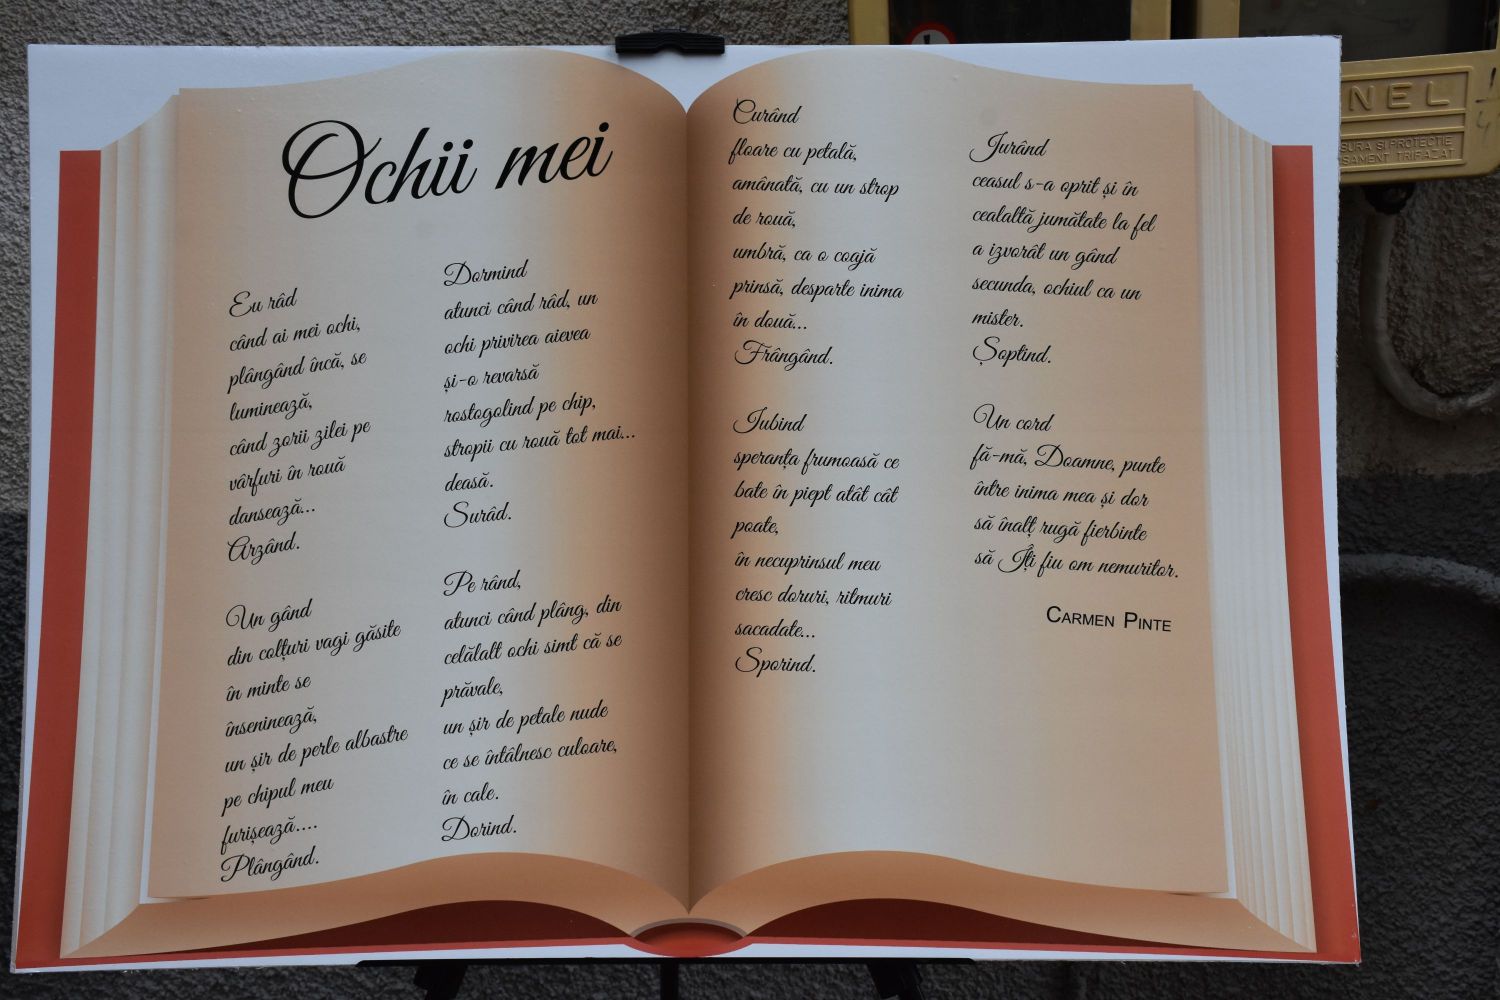 Ochii mei
Eu râd
când ai mei ochi,
plângând încă, se
luminează,
când zorii zilei pe
vârfuri în rouă
dansează...
Arzând.
Un gând
din colțuri vagi găsite
în minte se
înseninează,
un șir de perle albastre
pe chipul meu
furișează....
Plângând.
Dormind
atunci când râd, un
ochi privirea aievea
și-o revarsă
rostogolind pe chip,
stropii cu rouă tot mai...
deasă.
Surâd.
Pe rând,
atunci când plâng, din
celălalt ochi simt că se
prăvale,
un șir de petale nude
ce se întâlnesc culoare,
în cale.
Dorind.
Curând
floare cu petală,
amânată, cu un strop
de rouă,
umbră, ca o coajă
prinsă, desparte inima
în două...
Frângând.
Iubind
speranța frumoasă ce
bate în piept atât cât
poate,
în necuprinsul meu
cresc doruri, ritmuri
sacadate...
Sporind.
Jurând
ceasul s-a oprit și în
cealaltă jumătate la fel
a izvorât un gând
secunda, ochiul ca un
mister.
Șoptind.
Un cord
fă-mă, Doamne, punte
între inima mea și dor
să înalț rugă fierbinte
să Îți fiu om nemuritor.
Carmen Pinte
NEL
SURA SI PROTECTIE
SAMENT TRIFAZAT